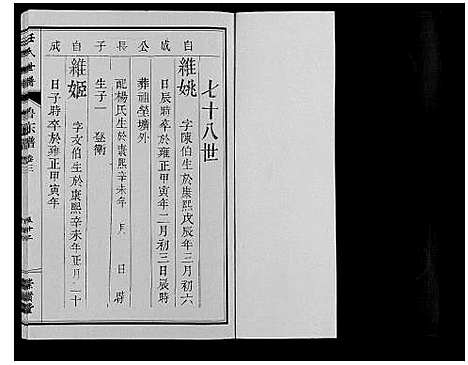 七十八世
自 維姚 字陳伯生於康熙戊辰年三月初六
咸 日辰時卒於雍正甲寅年二月初三日辰時
公 葬祖塋壙外
長 配楊氏生於康熙辛未年 月 日 時
子 生子一 登衛
自 維姬 字文伯生於康熙辛未年正月二十
成 日子時卒於雍正甲寅年
氏世譜
卷三